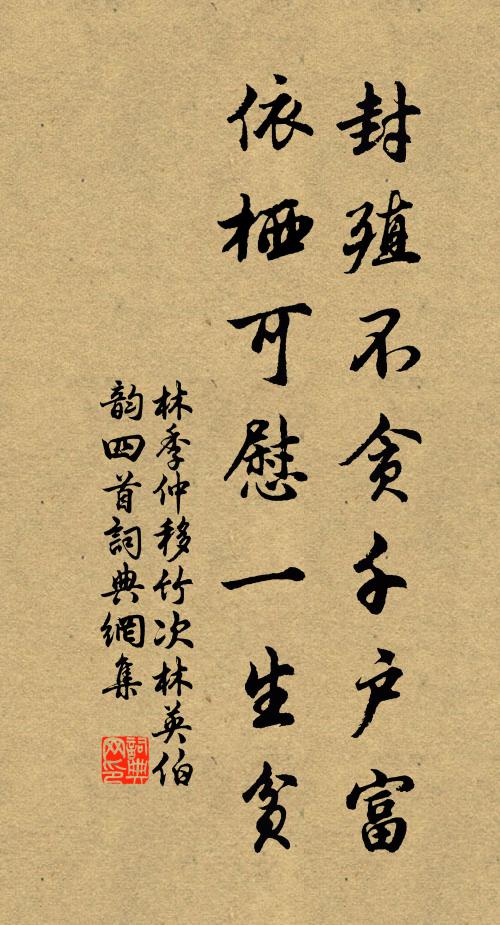 封殖不贪千户富
依栖可慰一生贫
林季仲移竹次林英伯
韵四首詞典網集
詞典网印